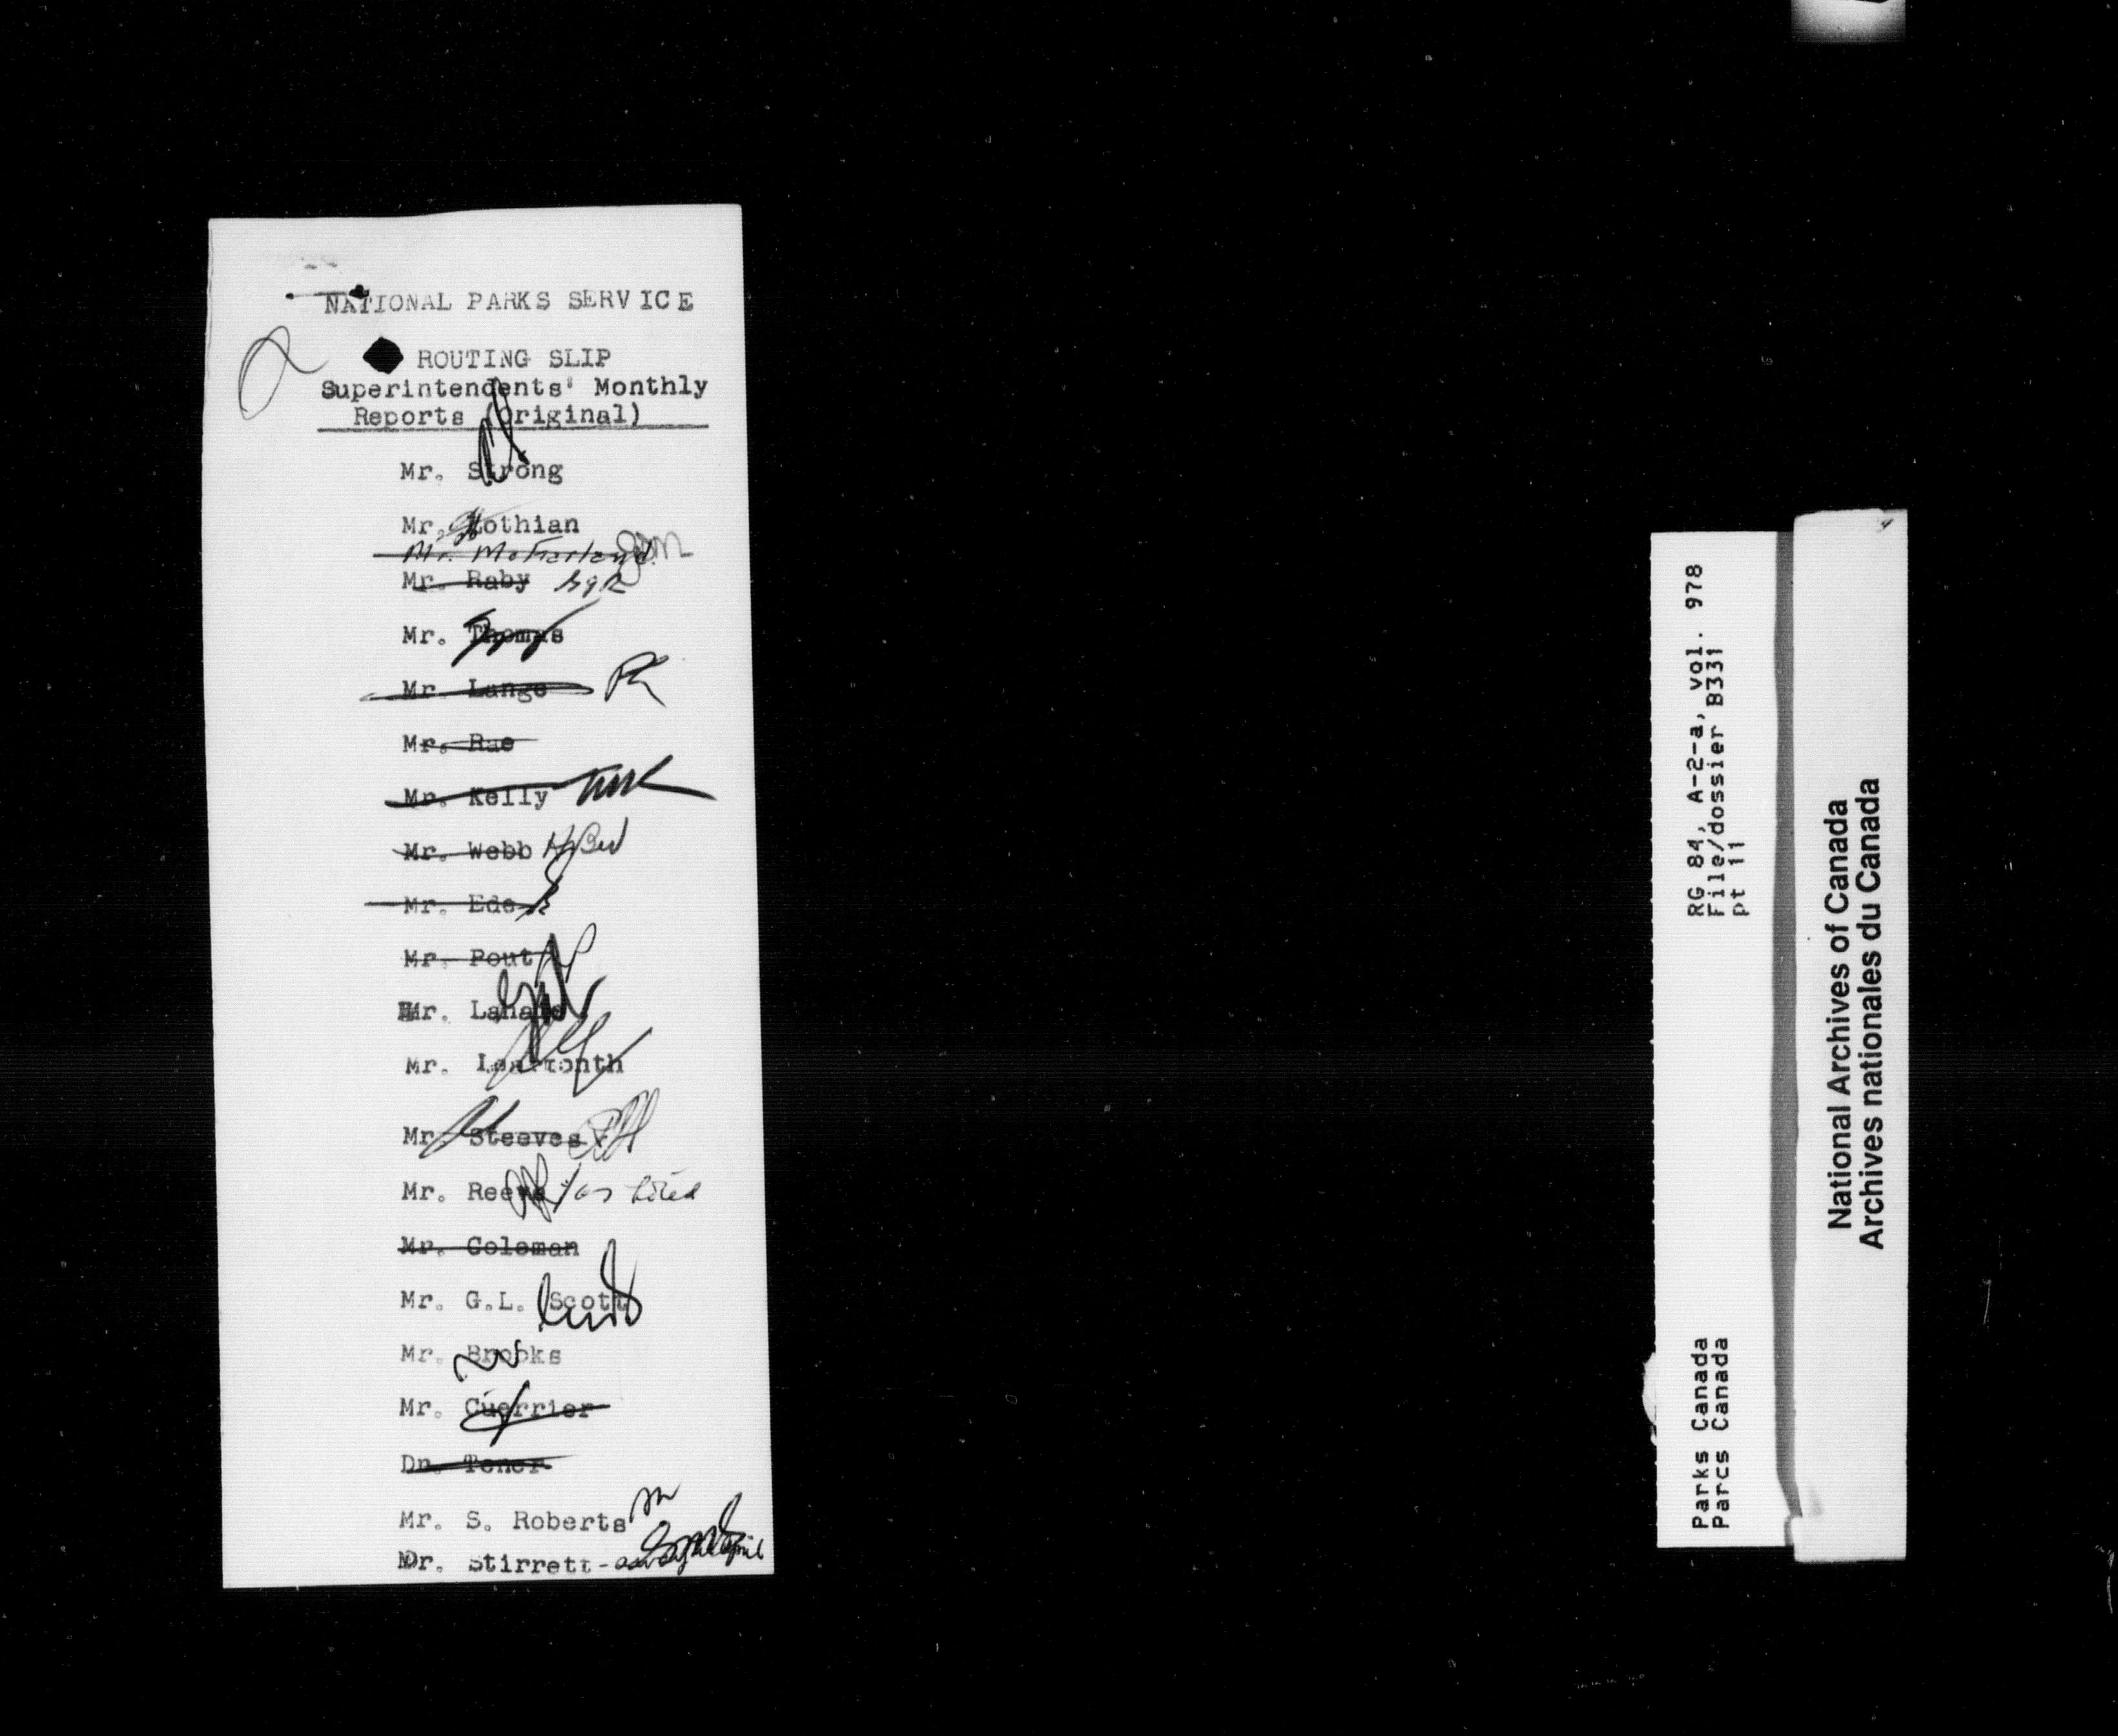 NATIONAL PARKS SERVICE
ROUTING SLIP
Superintendents' Monthly
Reports (Original)
Mr. Strong
Mr. Lothian
Mr. McFarland JSM
Mr. Raby
Mr. Thomas
Mr. Lange
Mr. Rae
Mr. Kelly
Mr. Webb HBW
Mr. Ede
Mr. Pout
Mr. Lanade
Mr. Learmonth
Mr. Steeves
Mr. Reeve as noted
Mr. Coleman
Mr. G.L. Scott
Mr. Brooks
Mr. Cuerrier
Dr. Tener
Mr. S. Roberts
Dr. Stirrett -
RG 84, A-2-a, vol. 978
File/dossier B331
pt 11
Parks Canada
Parcs Canada
National Archives of Canada
Archives nationales du Canada